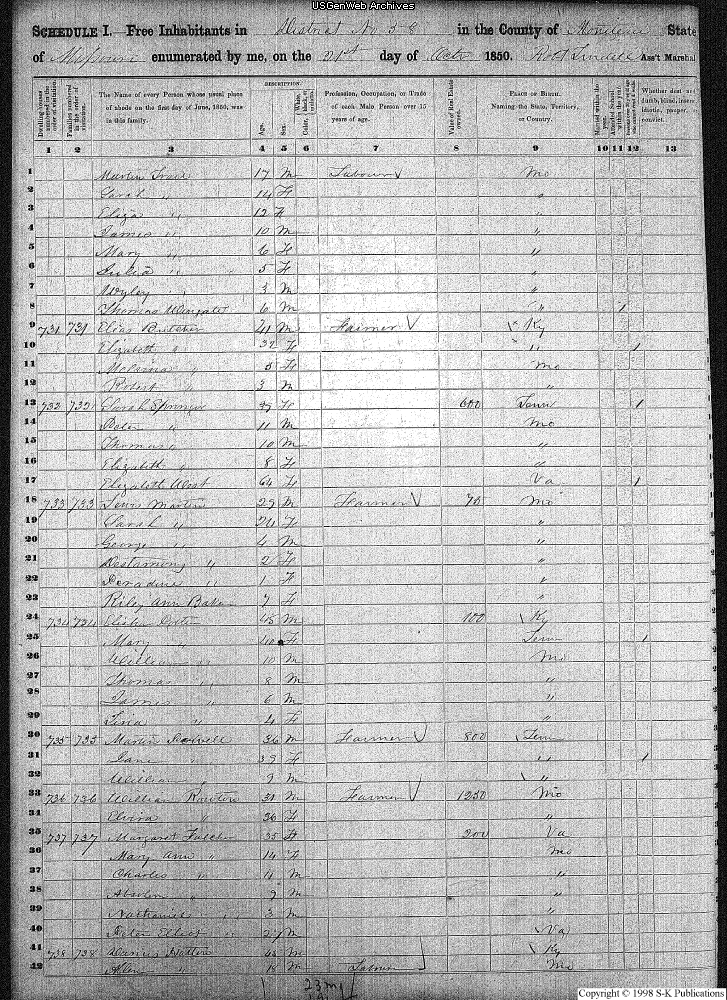 USGenWeb Archives
SCHEDULE I. Free Inhabitants in District No 58 in the County of Moniteau State
of Missouri enumerated by me, on the 21st day of Octr 1850. Ass't Marshal
Dwelling houses numbered in the order of visitation.
Families numbered in the order of visitation.
The Name of every Person whose usual place of abode on the first day of June, 1850, was in this family.
DESCRIPTION.
Age.
Sex.
Color, White, black, or mulatto.
Profession, Occupation, or Trade of each Male Person over 15 years of age.
Value of Real Estate owned.
PLACE OF BIRTH. Naming the State, Territory, or Country.
Married within the year.
Attended School within the year.
Whether deaf and dumb, blind, insane, idiotic, pauper, or convict.
1 2 3 4 5 6 7 8 9 10 11 12 13
1 17 M Labour Mo
2 Sarah " 14 F "
3 Eliza " 12 F "
4 James " 10 M "
5 Mary " 6 F "
6 Julia " 5 F "
7 Wyley " 3 M "
8 Thomas Wingate 6 M "
9 731 731 Elias Butcher 41 M Farmer Ky
10 Elizabeth " 32 F "
11 Melvina " 5 F Mo
12 Robert " 3 M "
13 732 732 Sarah Springer F 600 Tenn
14 " 11 M Mo
15 Thomas " 10 M "
16 Elizabeth " 8 F "
17 Elizabeth West 64 F Va
18 733 733 Lewis Martin 29 M Farmer 70 Mo
19 Sarah " 24 F "
20 George " 4 M "
21 " 2 F "
22 " 1 F "
23 Riley Ann Baker 7 F "
24 734 734 45 M 100 Ky
25 Mary " 40 F Tenn
26 William " 10 M Mo
27 Thomas " 8 M "
28 James " 6 M "
29 " 4 F "
30 735 735 Martin 36 M Farmer 800 Tenn
31 Jane " 39 F "
32 William " 9 M "
33 736 736 William 31 M Farmer 1250 Mo
34 Elvira " 26 F "
35 737 737 Margaret Fulcher 35 F 200 Va
36 Mary Ann " 14 F Mo
37 Charles " 11 M "
38 " 9 M "
39 Nathaniel " 3 M "
40 Elliott 27 M Va
41 738 738 M Ky
42 " 18 M Labour Mo
23 m
Copyright © 1998 S-K Publications